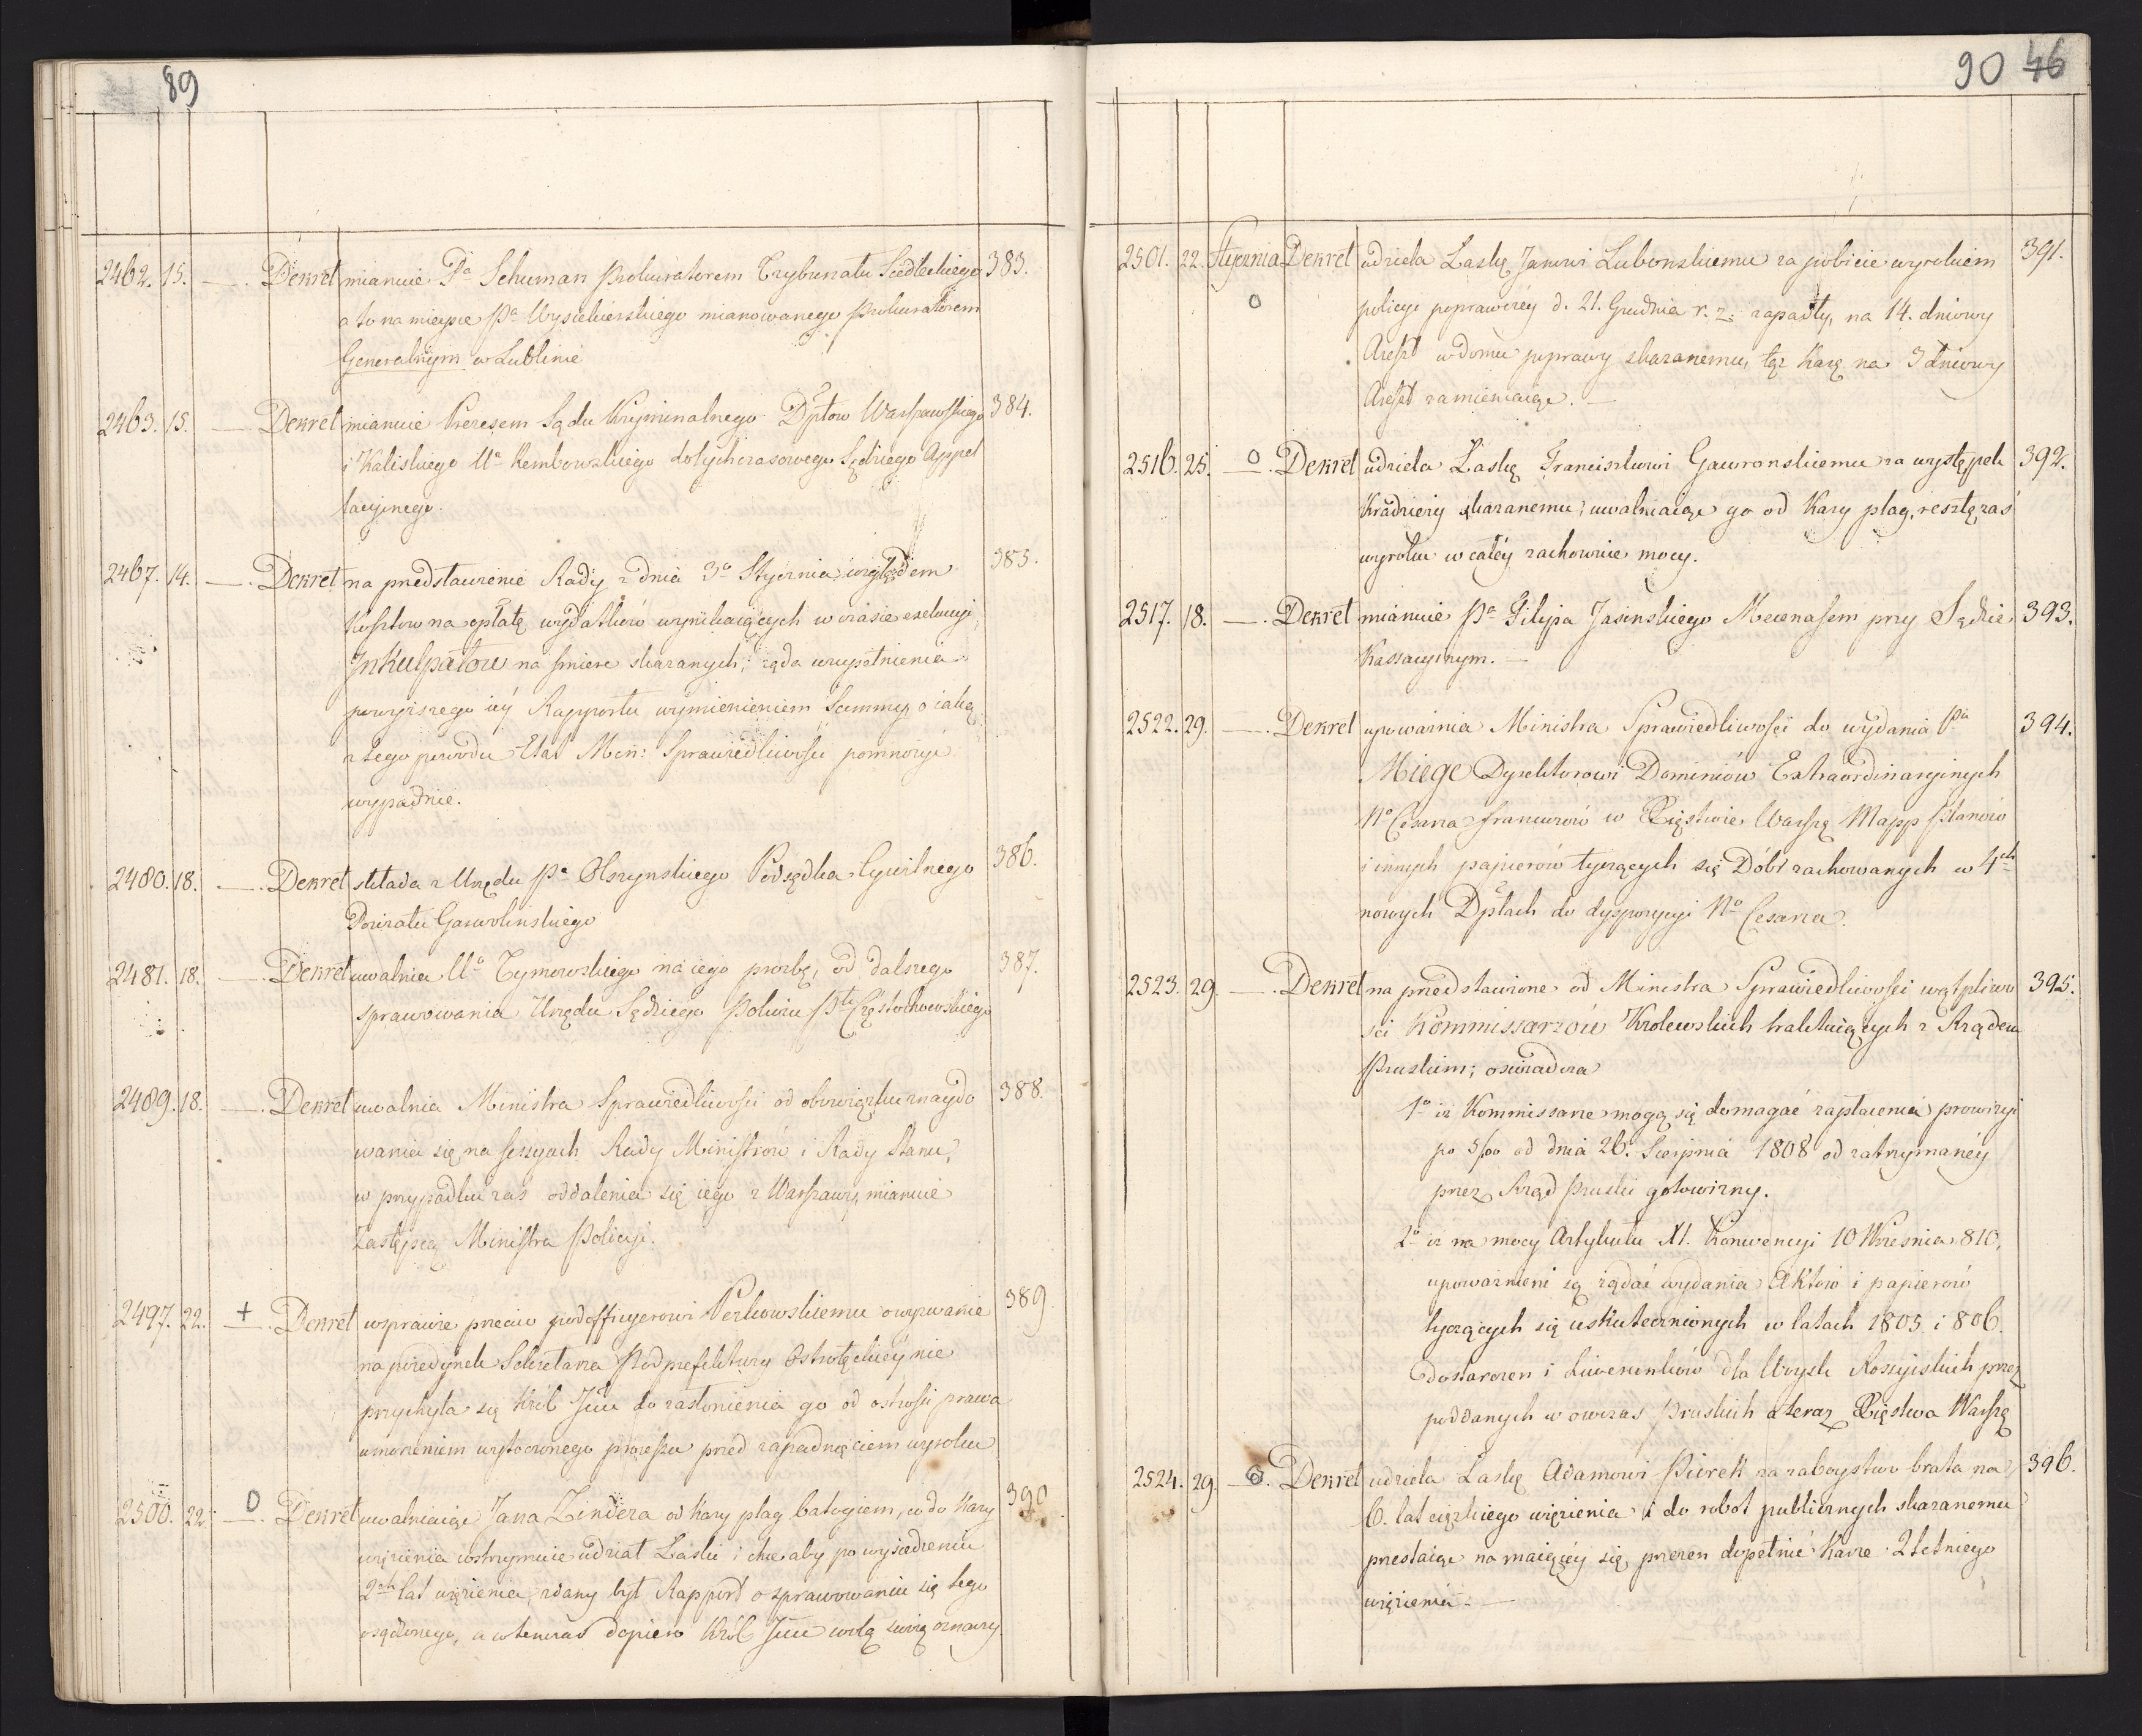 89
2462. 15. — . Dekret mianuie Pa Schuman Prokuratorem Trybunału Siedleckiego 383.
a to na mieysce Pa Wysiekierskiego mianowanego Prokuratorem
Generalnym w Lublinie
2463. 15. — Dekret mianuie Prezesem Sądu Kryminalnego Dptów Warszawskiego 384.
i Kaliskiego Uo Kembowskiego dotychczasowego Sędziego Appel
lacyinego.
2467. 14. — . Dekret na przedstawienie Rady z dnia 3o Stycznia, względem 385.
kosztów na opłatę wydatków wynikaiących w czasie exekucyi
Inkulpatów na śmierc skazanych, żąda uzupełnienia
powyższego iey Rapportu wymienieniem Summy, o iaką
z tego powodu Etat Min: Sprawiedliwości pomnożyć
wypadnie.
2480. 18. — . Dekret składa z Urzędu Pa Olszynskiego Podsędka Cywilnego 386.
Powiatu Garwolinskiego
2481. 18. — . Dekret uwalnia Uo Tymowskiego na iego prozbę, od dalszego 387.
sprawowania Urzędu Sędziego Pokoiu Ptu Częstochowskiego
2489. 18. — . Dekret uwalnia Ministra Sprawiedliwości od obowiązku znaydo 388.
wania się na sessyach Rady Ministrów i Rady Stanu,
w przypadku zaś oddalenia się iego z Warszawy, mianuie
Zastępcą Ministra Policyi.
2497. 22. + . Dekret w sprawie przeciw podofficyerowi Perkowskiemu o wyzwanie 389
na poiedynek Sekretarza Podprefektury Ostrołęckiéy nie
przychyla się Król Jmć do zasłonienia go od ostrości prawa
umorzeniem wytoczonego processu przed zapadnięciem wyroku
2500. 22. O — . Dekret uwalniaiąc Jana Zindera od kary plag batogiem, co do kary 390
więzienia wstrzymuie udział Łaski i chce aby po wysiedzeniu
2ch lat więzienia, zdany był Rapport o sprawowaniu się tego
osądzonego, a wtenczas dopiero Król Jmć wolą swoią oznaczy.
90 46
2501. 22. Stycznia Dekret udziela Łaskę Janowi Lubonskiemu za pobicie wyrokiem 391.
O policyi poprawczéy d. 21. Grudnia r. z. zapadły, na 14. dniowy
Areszt w domu poprawy skazanemu, tęż karę na 3 dniowy
Areszt zamieniaiąc. —
2516. 25. O — . Dekret udziela Łaskę Franciszkowi Gawronskiemu za występek 392.
kradzieży skazanemu, uwalniaiąc go od kary plag, resztę zaś
wyroku w całéy zachowuie mocy.
2517. 18. — . Dekret mianuie Pa Filipa Jasinskiego Mecenasem przy Sądzie 393.
Kassacyinym. —
2522. 29. — . Dekret upoważnia Ministra Sprawiedliwości do wydania Pu 394.
Miege Dyrektorowi Dominiów Extraordinaryinych
No Cesarza francuzów w Xięstwie Warszę Mapp Planów
i innych papierów tyczących się Dóbr zachowanych w 4ch
nowych Dptach do dyspozycyi No Cesarza.
2523. 29. — . Dekret na przedstawione od Ministra Sprawiedliwości wątpliwo 395.
ści Kommissarzów Krolewskich traktuiących z Rządem
Pruskim; oświadcza
1o iż Kommissarze mogą się domagać zapłacenia prowizyi
po 5/00 od dnia 26. Sierpnia 1808 od zatrzymanéy
przez Rząd Pruski gotowizny.
2o iż na mocy Artykułu XI. Konwencyi 10 Września 810,
upoważnieni są żądać wydania Aktów i papierów
tyczących się uskutecznionych w latach 1805 i 806.
dostarczen i Liwerunków dla Woysk Rossyiskich przez
poddanych w owczas Pruskich a teraz Xięstwa Warszę
2524. 29. O . Dekret udziela Łaskę Adamowi Piórek za zaboystwo brata na 396.
6. lat ciężkiego więzienia i do robot publicznych skazanemu
przestaiąc na maiącéy się przezen dopełnić karze 2 letniego
więzienia. —